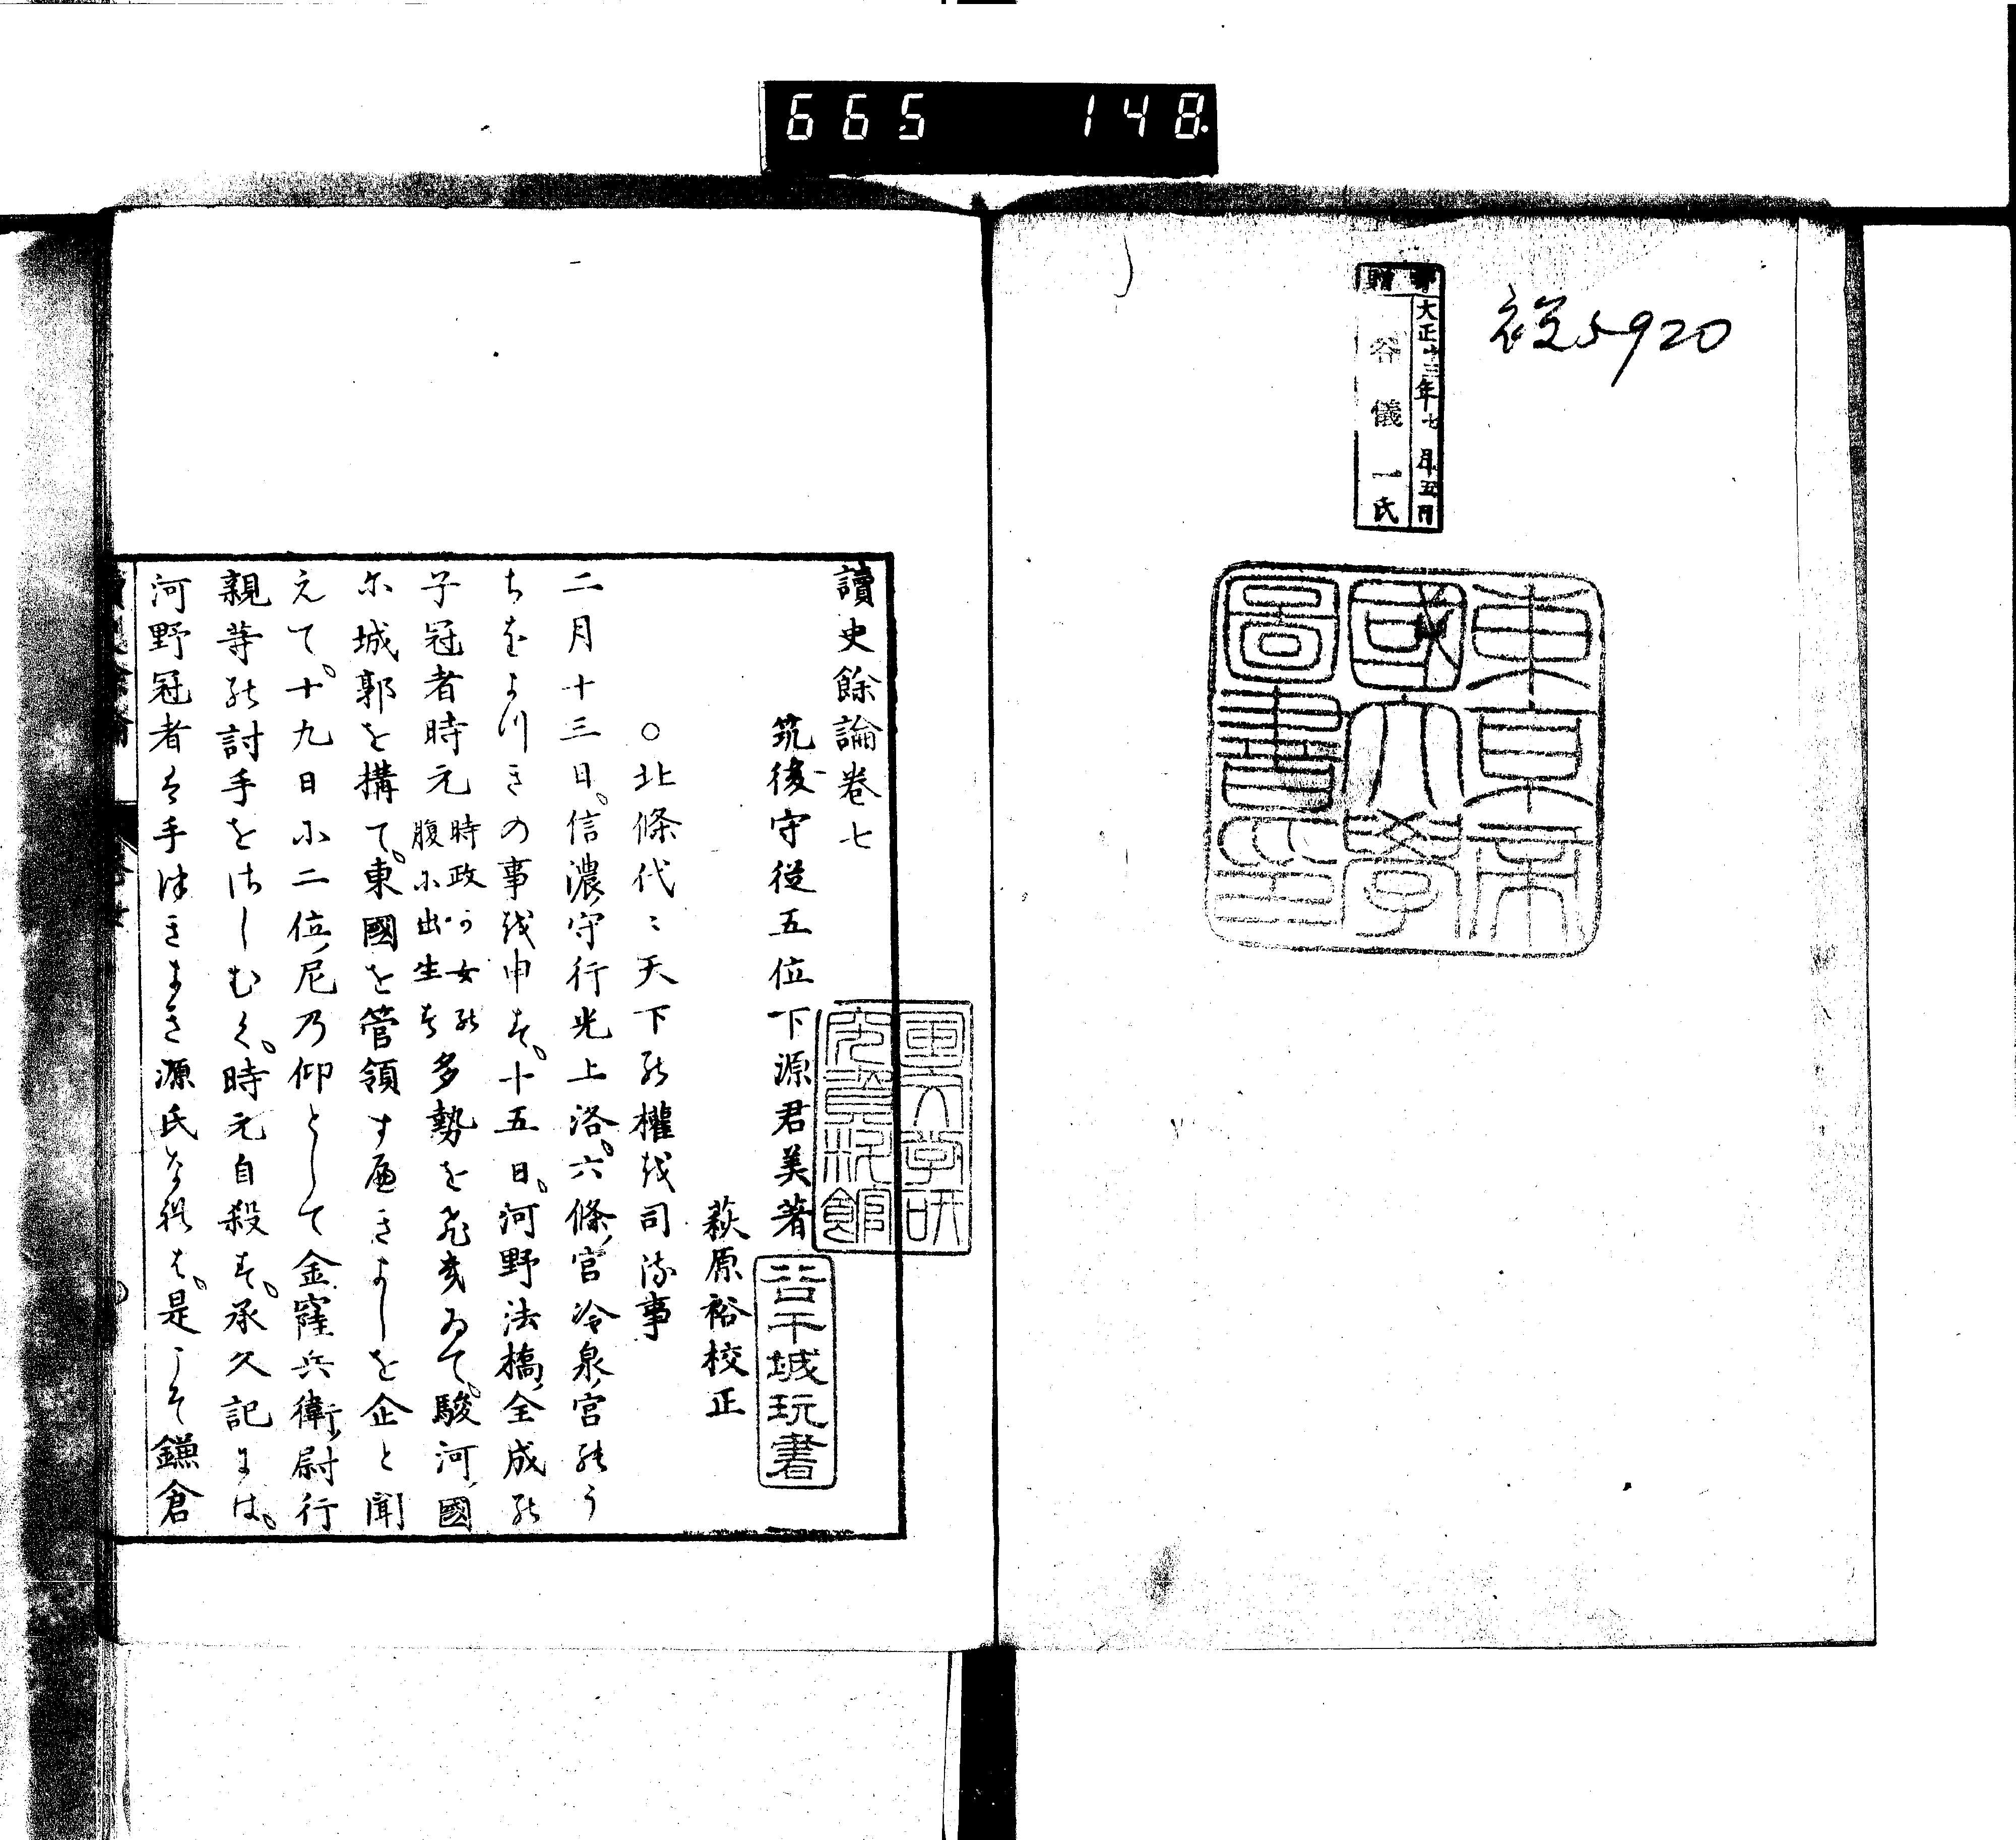 665 148
5920
寄贈
大正十三年七月五日
谷儀一氏
東京帝
國大學
圖書印
讀史餘論卷七
筑後守從五位下源君美著
萩原裕校正
苔干城玩書
○北條代々天下の權を司る事
二月十三日。信濃守行光上洛。六條宮冷泉宮のう
ちをよつぎの事を申す。十五日。河野法橋全成の
子冠者時元時政が女の腹に出生す多勢をひきゐて。駿河國
に城郭を構て。東國を管領すべきよしを企と聞
えて。十九日に二位尼乃仰として金窪兵衛尉行
親等の討手をはしむく。時元自殺す。承久記には。
河野冠者は手はきまき源氏なれば。是こそ鎌倉